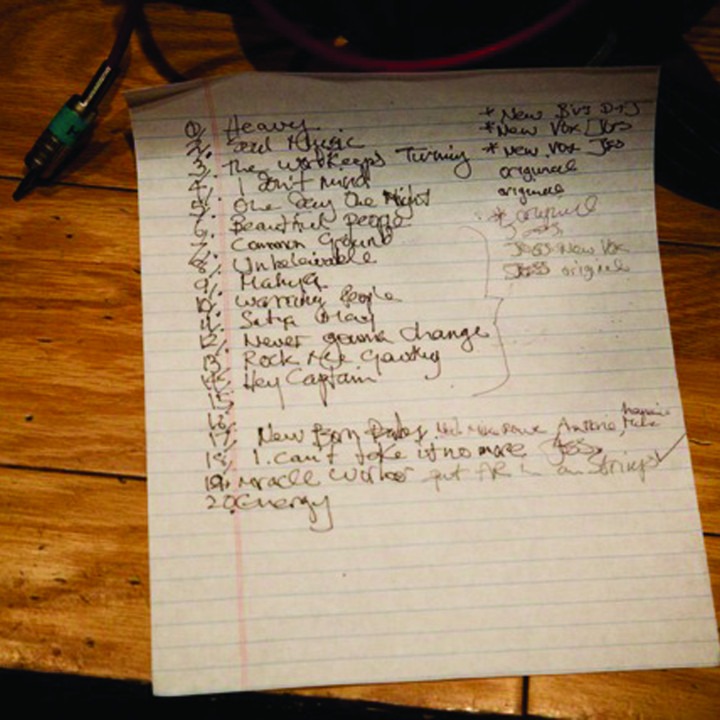 1. Heavy * New
2. Soul Music * New Vox Jess
3. The World Keeps Turning * New Vox Jess
4. I Don't Mind original
5. One Day One Night original
6. Beautiful People * original
7. Common Ground Jess
8. Unbeleivable Jess New Vox
9. Jess original
10. Warring People
11. 
12. Never gonna Change
13. Rock Me
14. Hey Captain
15.
16.
17. New Born Baby, Antoine,
18. I can't take it no more Jess
19. Miracle Worker put on Strings
20. Energy